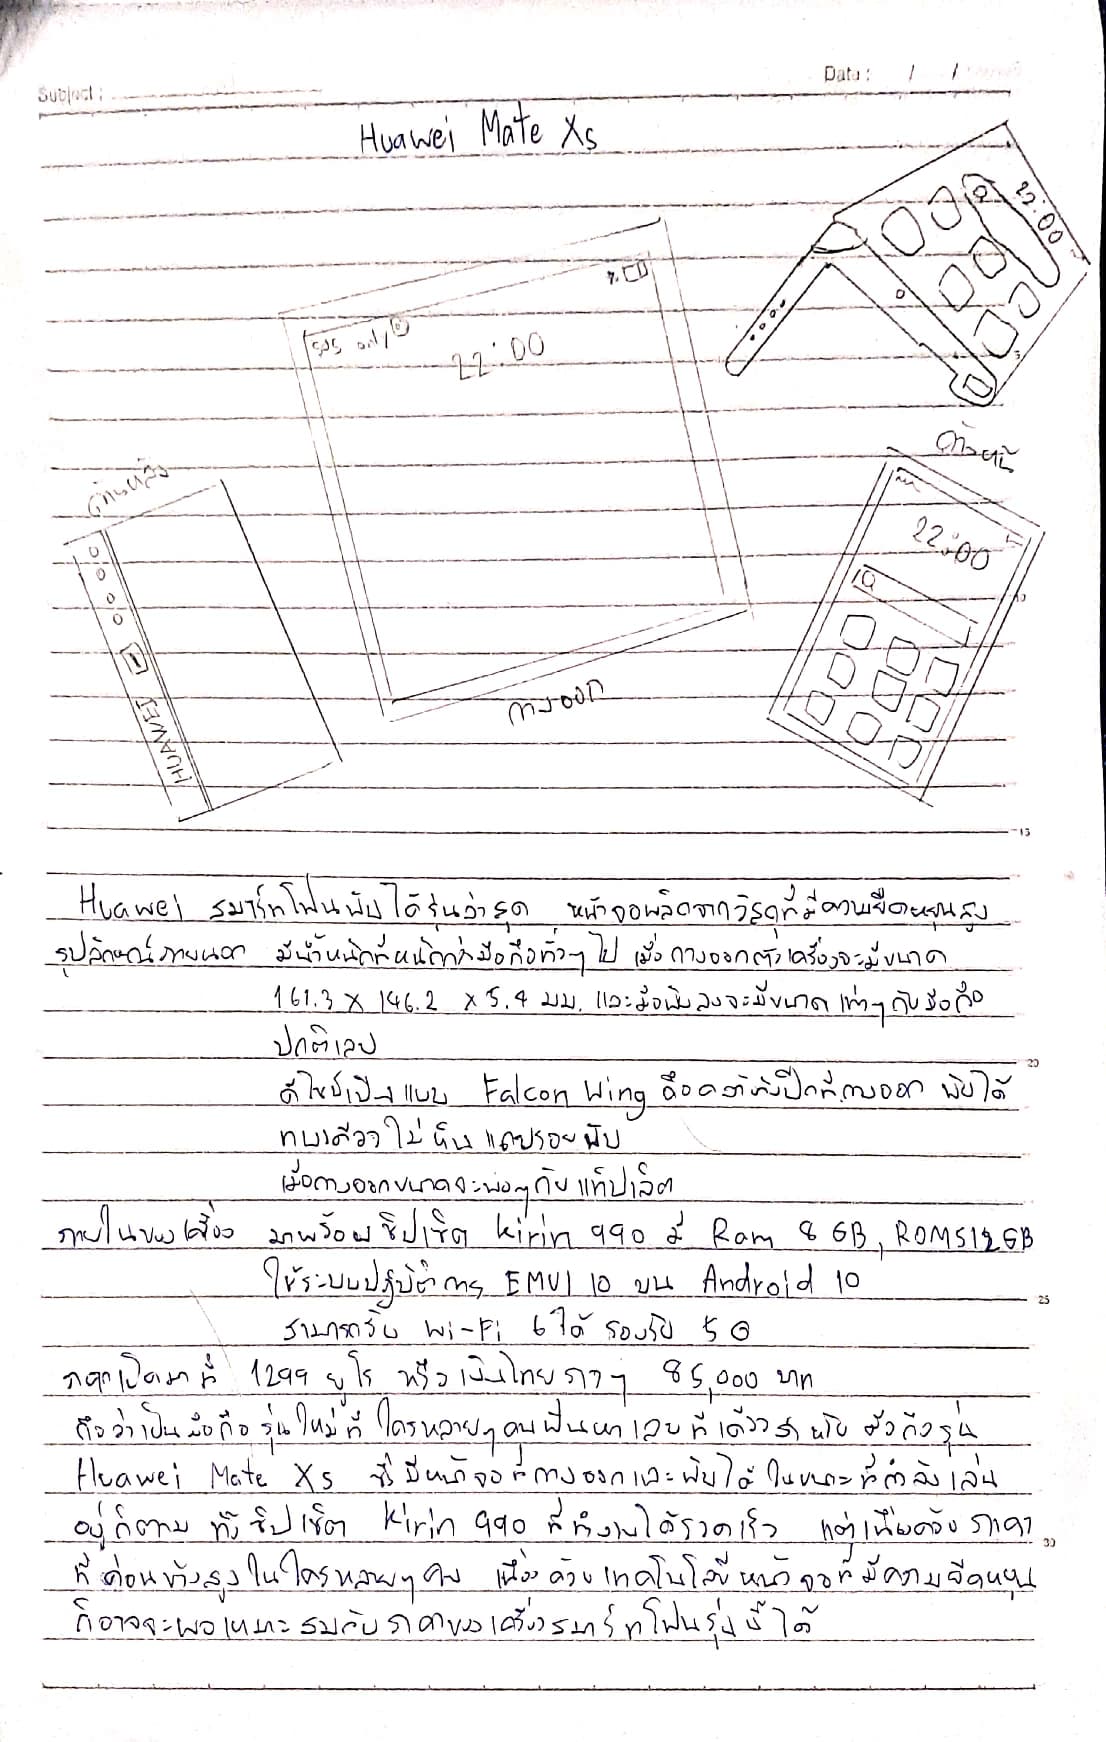 Subject :
Date : / /
Huawei Mate Xs
22:00
SOS only
22:00
กางออก
ด้านหลัง
HUAWEI
22:00
15
Huawei สมาร์ทโฟนพับได้รุ่นล่าสุด หน้าจอผลิตจากวัสดุที่มีความยืดหยุ่นสูง
รูปลักษณ์ภายนอก มีน้ำหนักที่หนักกว่ามือถือทั่วๆ ไป เมื่อ กางออกตัวเครื่องจะมีขนาด
161.3 x 146.2 x 5.4 มม. และเมื่อพับลงจะมีขนาด เท่าๆ กับมือถือ
ปกติเลย
20
ดีไซน์เป็นแบบ Falcon Wing คือคล้ายปีกที่กางออก พับได้
ทบเดียว ไม่เห็นแถบรอยพับ
เมื่อกางออกขนาดจะพอๆ กับ แท็ปเล็ต
ภายในของเครื่อง มาพร้อม ชิปเซ็ต Kirin 990 มี Ram 8 GB, ROM512GB
ใช้ระบบปฏิบัติการ EMUI 10 บน Android 10
25
สามารถรับ Wi-Fi 6 ได้ รองรับ 5G
ราคาเปิดมาที่ 1299 ยูโร หรือ เงินไทยราวๆ 85,000 บาท
ถือว่าเป็น มือถือ รุ่นใหม่ที่ ใครหลายๆ คนฝันหา เลยทีเดียว สำหรับ มือถือรุ่น
Huawei Mate Xs ที่มีหน้าจอที่กางออกและพับได้ ในขณะที่กำลังเล่น
อยู่ก็ตาม ทั้งชิปเซ็ต Kirin 990 ที่ทำงานได้รวดเร็ว แต่เนื่องด้วย ราคา
30
ที่ค่อนข้างสูงในใครหลายๆ คน เนื่องด้วย เทคโนโลยีหน้าจอที่มีความยืดหยุ่น
ก็อาจจะพอเหมาะสมกับราคาของเครื่องสมาร์ทโฟนรุ่นนี้ได้